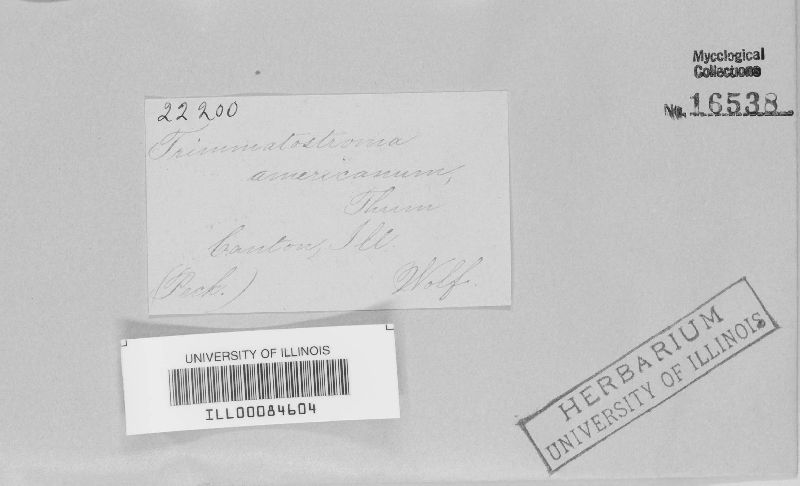 Mycological
Collections
No. 16538
22200
Trimmatostroma
americanum,
Thum
Canton, Ill.
(Peck.) Wolf.
UNIVERSITY OF ILLINOIS
ILL00084604
HERBARIUM
UNIVERSITY OF ILLINOIS